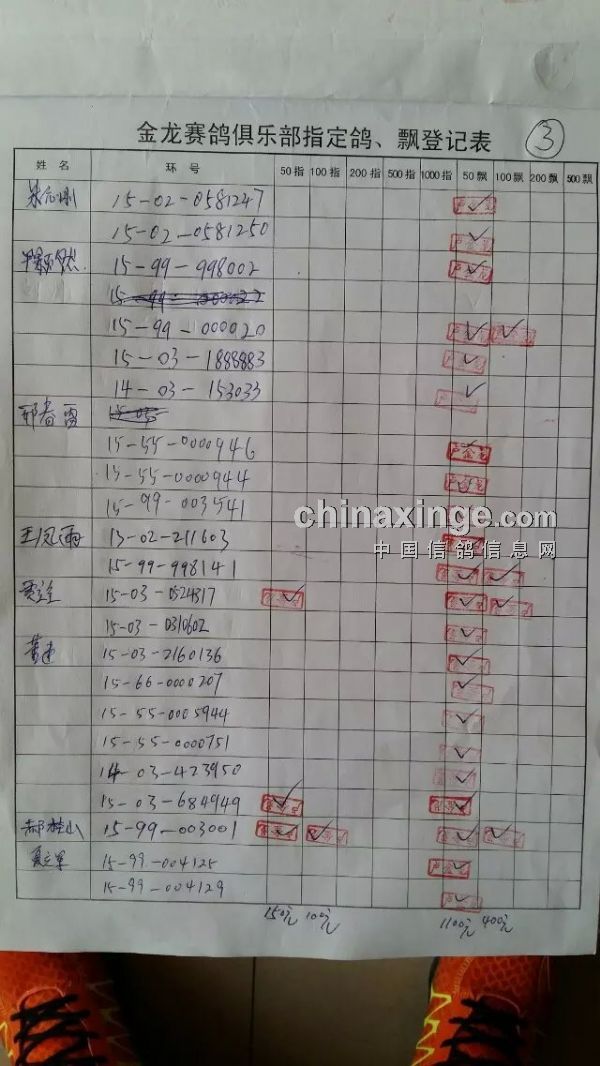 金龙赛鸽俱乐部指定鸽、飘登记表 3
姓名 环号 50指 100指 200指 500指 1000指 50飘 100飘 200飘 500飘
15-02-0581247
15-02-0581250
15-99-998002
15-99-000020
15-03-1888883
14-03-153033
邢春雷
15-55-0000946
15-55-0000944
15-99-003541
chinaxinge.com
中国信鸽信息网
王凤雨 13-02-211603
15-99-998141
15-03-0524317
15-03-0310602
黄建 15-03-2160136
15-66-0000207
15-55-0005944
15-55-0000751
14-03-423950
15-03-684949
郝桂山 15-99-003001
夏立军 15-99-004125
15-99-004129
150元 100元 1100元 400元